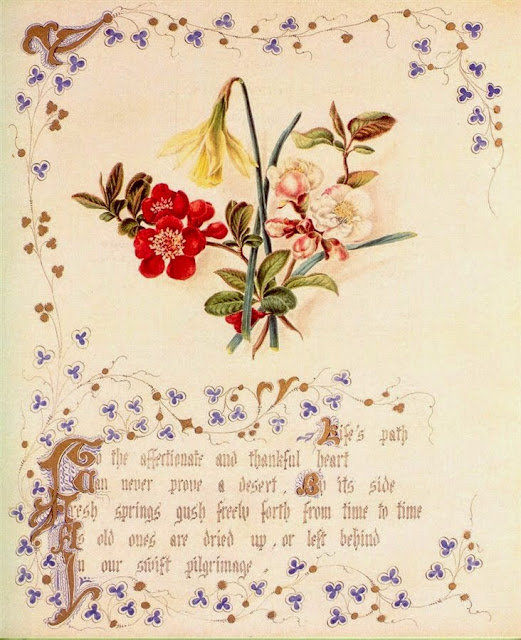 Life's path
To the affectionate and thankful heart
Can never prove a desert, By its side
Fresh springs gush freely forth from time to time
As old ones are dried up, or left behind
In our swift pilgrimage,